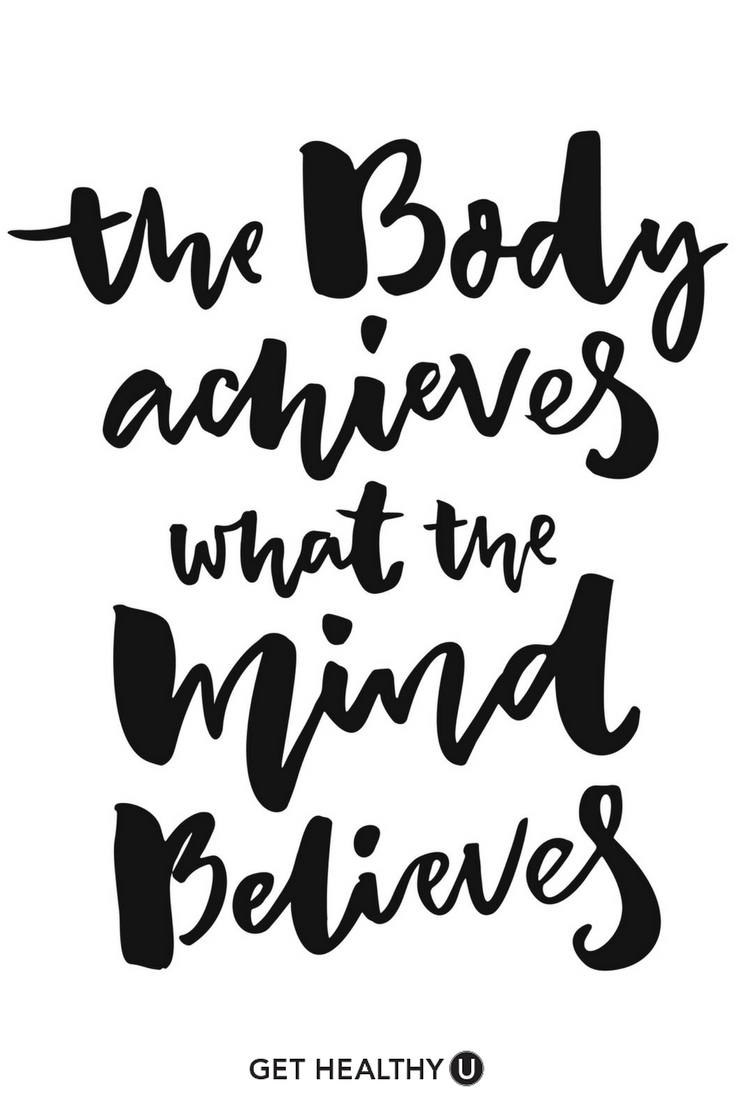 the Body
achieves
what the
mind
Believes
GET HEALTHY U